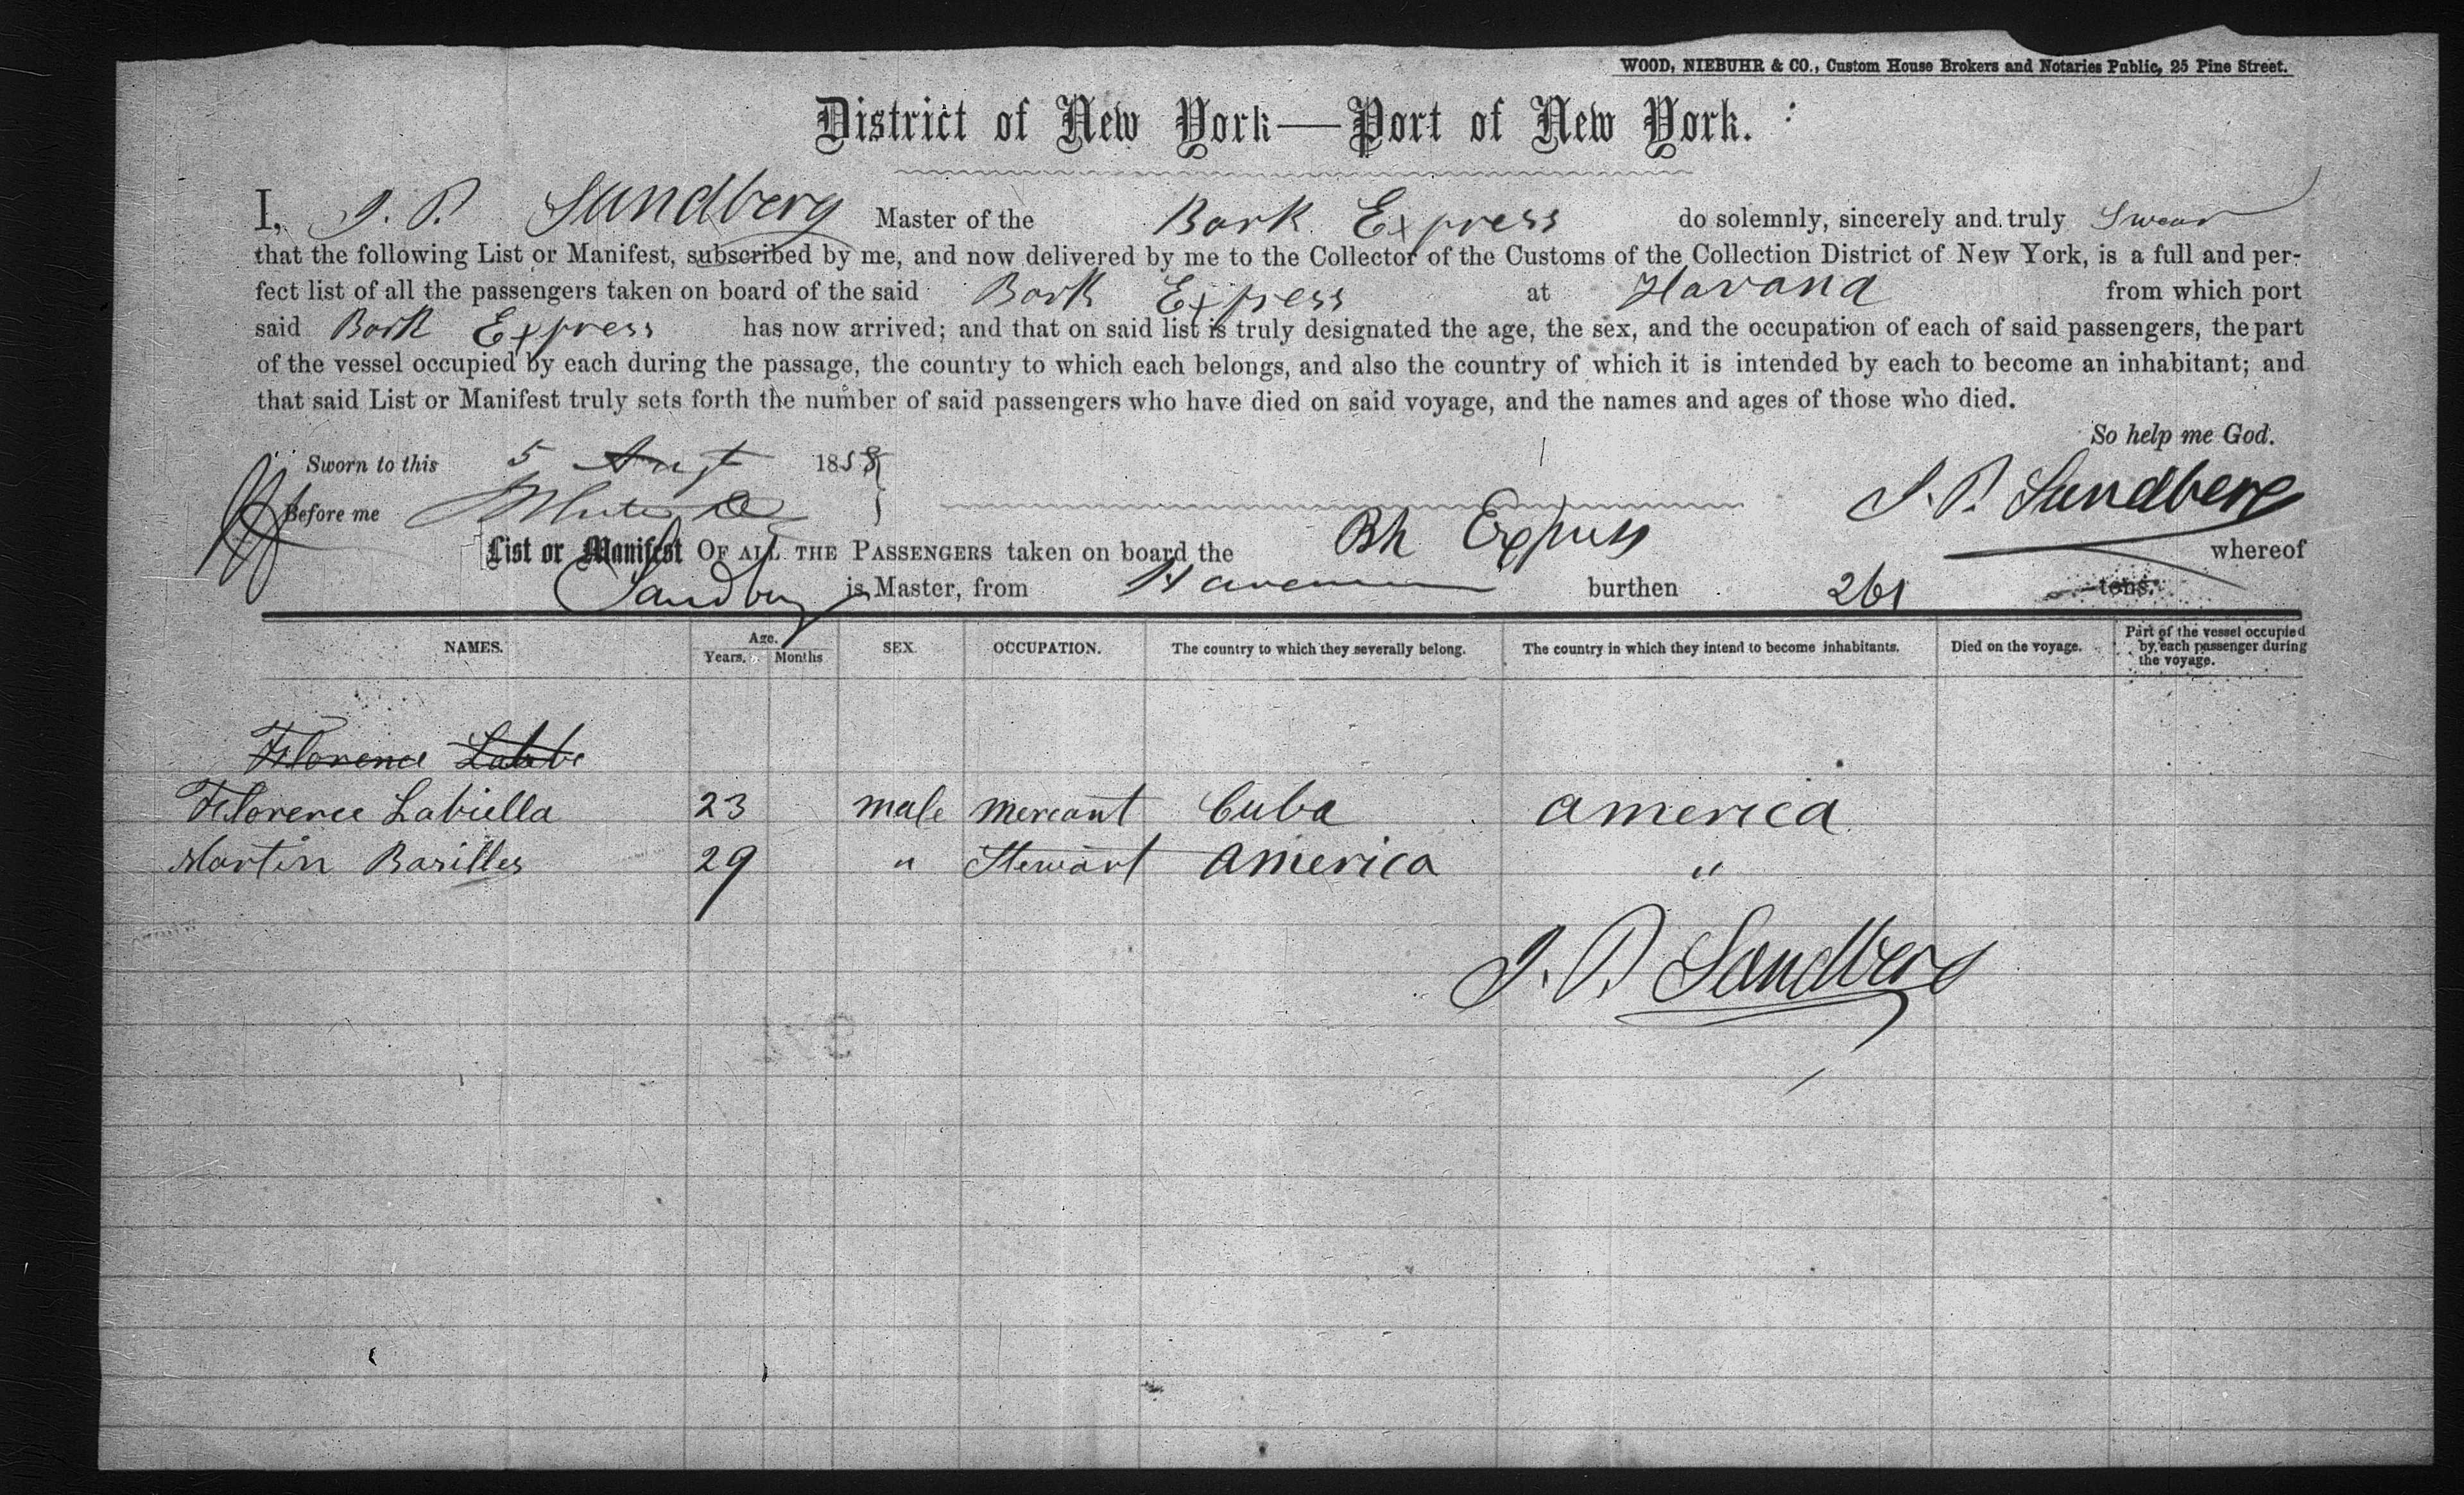 WOOD, NIEBUHR & CO., Custom House Brokers and Notaries Public, 25 Pine Street.
District of New York—Port of New York.
I, J. P. Sandberg Master of the Bark Express do solemnly, sincerely and truly Swear
that the following List or Manifest, subscribed by me, and now delivered by me to the Collector of the Customs of the Collection District of New York, is a full and per-
fect list of all the passengers taken on board of the said Bark Express at Havana from which port
said Bark Express has now arrived; and that on said list is truly designated the age, the sex, and the occupation of each of said passengers, the part
of the vessel occupied by each during the passage, the country to which each belongs, and also the country of which it is intended by each to become an inhabitant; and
that said List or Manifest truly sets forth the number of said passengers who have died on said voyage, and the names and ages of those who died.
So help me God.
Sworn to this 5 Augt 1858
J. P. Sandberg
Before me
List or Manifest OF ALL THE PASSENGERS taken on board the Bk Express whereof
Sandberg is Master, from Havana burthen 261 tons.
NAMES. Age. Years. Months SEX. OCCUPATION. The country to which they severally belong. The country in which they intend to become inhabitants. Died on the voyage. Part of the vessel occupied by each passenger during the voyage.
Florence Labbe
Florence Labiella 23 male mercant Cuba America
Martin Barilles 29 " Stewart America "
J. P. Sandberg